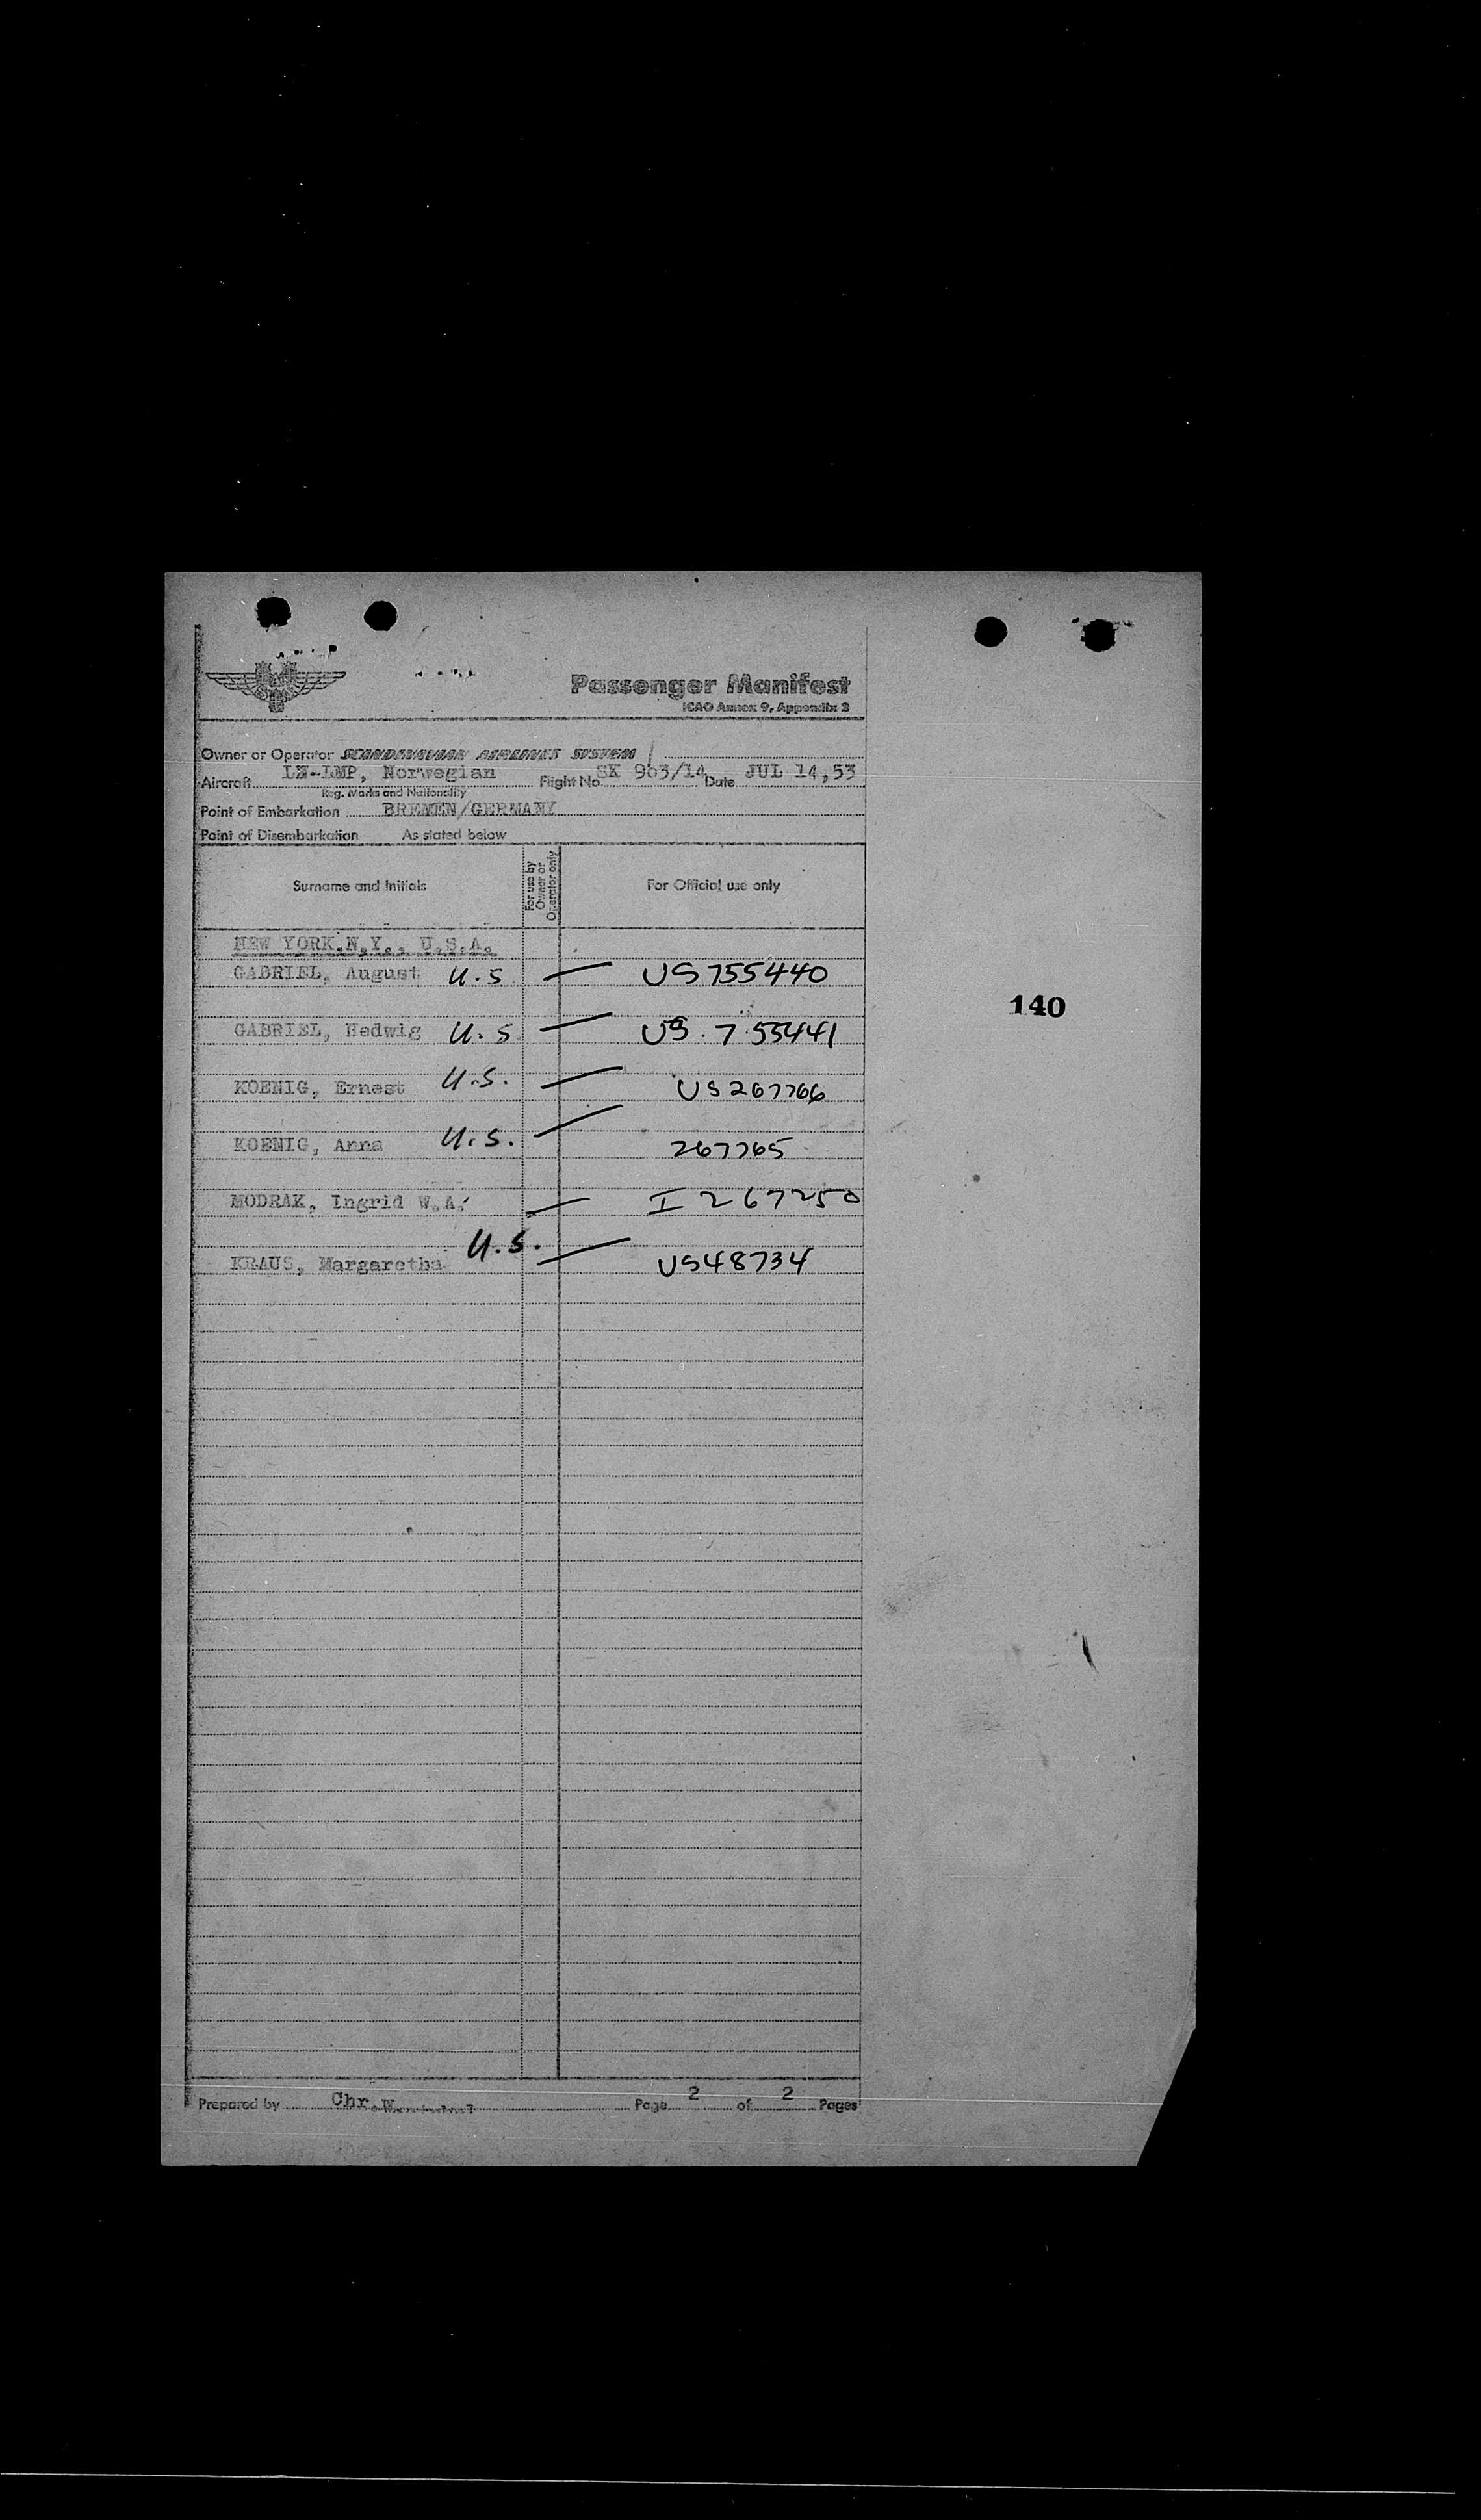 Passenger Manifest
ICAO Annex 9, Appendix 2
Owner or Operator SCANDINAVIAN AIRLINES SYSTEM
Aircraft LN-LMP, Norwegian Flight No. SK 963/14 Date JUL 14,53
Reg. Marks and Nationality
Point of Embarkation BREMEN/GERMANY
Point of Disembarkation As stated below
Surname and Initials
For use by Owner or Operator only
For Official use only
NEW YORK.N.Y., U.S.A.
GABRIEL, August U.S US 755440
140
GABRIEL, Hedwig U.S US. 7 55441
KOENIG, Ernest U.S. US 267766
KOENIG, Anna U.S. 267765
MODRAK, Ingrid W.A. I 267250
KRAUS, Margaretha U.S. US48734
Prepared by Chr. Page 2 of 2 Pages